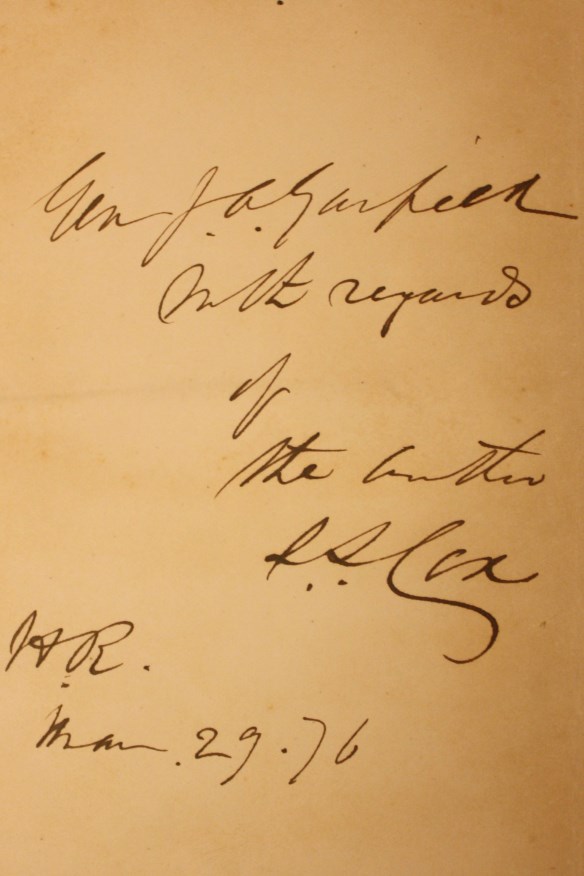 Gen J. A. Garfield
with regards
of
the author
S. S. Cox
H. R.
Mar. 29. 76